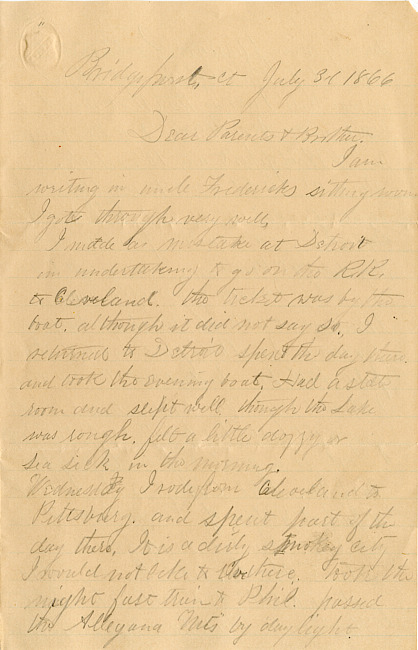 Bridgeport, ct July 31 1866
Dear Parents & Brother.
I am
writing in uncle Fredericks sitting room
I got through very well,
I made a mistake at Detroit
in undertaking to go on the R.R.
to Cleveland. the ticket was by the
boat. although it did not say so. I
returned to Detroit spent the day there.
and took the evening boat, Had a state
room and slept well though the Lake
was rough. felt a little dozzy or
sea sick in the morning.
Wednesday I rode from Cleveland to
Pittsburg. and spent part of the
day there, It is a dirty smokey city
I would not like to live there. took the
night fast train to Phil. passed
the Allegana Mts by day light